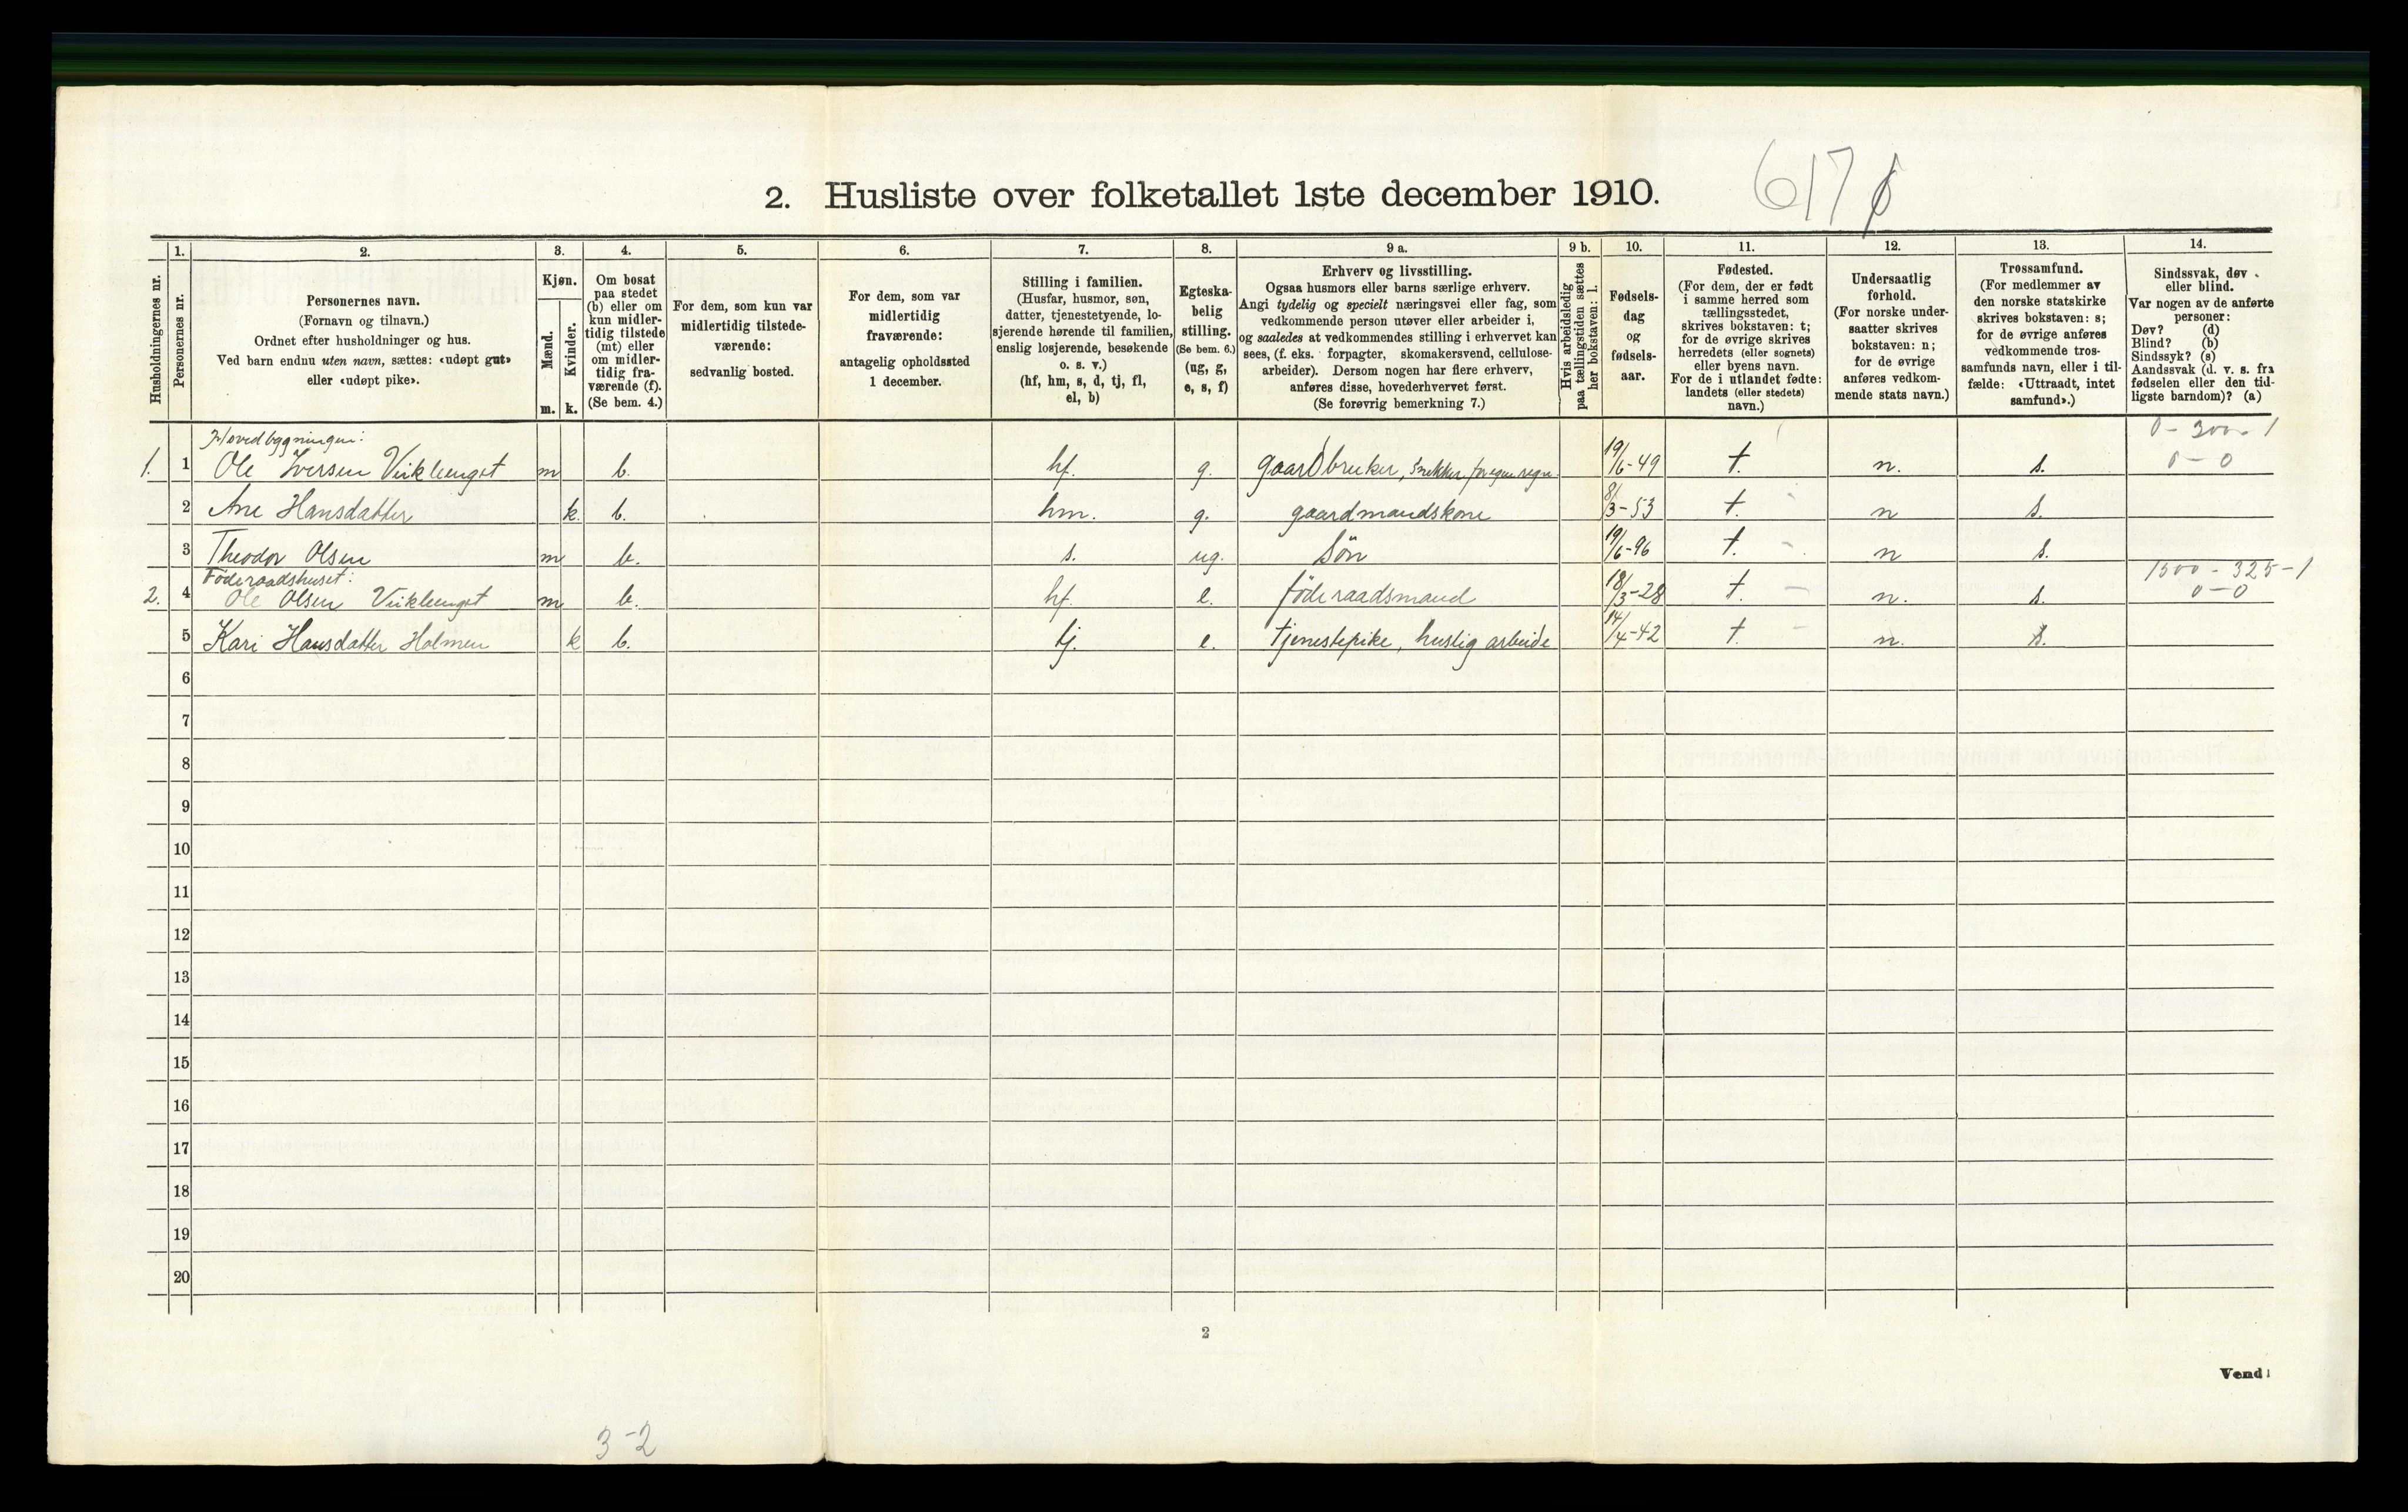 2. Husliste over folketallet 1ste december 1910.
617
Husholdningernes nr.
1. Personernes nr.
2. Personernes navn. (Fornavn og tilnavn.) Ordnet efter husholdninger og hus. Ved barn endnu uten navn, sættes: «udøpt gut» eller «udøpt pike».
3. Kjøn. Mænd. m. Kvinder. k.
4. Om bosat paa stedet (b) eller om kun midlertidig tilstede (mt) eller om midlertidig fraværende (f). (Se bem. 4.)
5. For dem, som kun var midlertidig tilstedeværende: sedvanlig bosted.
6. For dem, som var midlertidig fraværende: antagelig opholdssted 1 december.
7. Stilling i familien. (Husfar, husmor, søn, datter, tjenestetyende, losjerende hørende til familien, enslig losjerende, besøkende o. s. v.) (hf, hm, s, d, tj, fl, el, b)
8. Egteskabelig stilling. (Se bem. 6.) (ug, g, e, s, f)
9 a. Erhverv og livsstilling. Ogsaa husmors eller barns særlige erhverv. Angi tydelig og specielt næringsvei eller fag, som vedkommende person utøver eller arbeider i, og saaledes at vedkommendes stilling i erhvervet kan sees, (f. eks. forpagter, skomakersvend, cellulosearbeider). Dersom nogen har flere erhverv, anføres disse, hovederhvervet først. (Se forøvrig bemerkning 7.)
9 b. Hvis arbeidsledig paa tællingstiden sættes her bokstaven: l.
10. Fødselsdag og fødselsaar.
11. Fødested. (For dem, der er født i samme herred som tællingsstedet, skrives bokstaven: t; for de øvrige skrives herredets (eller sognets) eller byens navn. For de i utlandet fødte: landets (eller stedets) navn.)
12. Undersaatlig forhold. (For norske undersaatter skrives bokstaven: n; for de øvrige anføres vedkommende stats navn.)
13. Trossamfund. (For medlemmer av den norske statskirke skrives bokstaven: s; for de øvrige anføres vedkommende trossamfunds navn, eller i tilfælde: «Uttraadt, intet samfund».)
14. Sindssvak, døv eller blind. Var nogen av de anførte personer: Døv? (d) Blind? (b) Sindssyk? (s) Aandssvak (d. v. s. fra fødselen eller den tidligste barndom)? (a)
Hovedbygningen: 0 - 300 - 1
1. 1 Ole Iversen Virklenget m b. hf. g. gaardbruker, Snekker for egen regn. 19/6-49 t. n. s. 0 - 0
2 Ane Hansdatter k. b. hm. g. gaardmandskone 8/3-53 t. n s.
3 Theodor Olsen m b. s. ug. Sön 19/6-96 t. n s.
Föderaadshuset: 1500 - 325 - 1
2. 4 Ole Olsen Virklenget m b. hf. e. föderaadsmand 18/3-28 t. n. s. 0 - 0
5 Kari Hansdatter Holmen k b. tj. e. tjenestepike, huslig arbeide 14/4-42 t. n. s.
6
7
8
9
10
11
12
13
14
15
16
17
18
19
20
2
Vend!
3-2